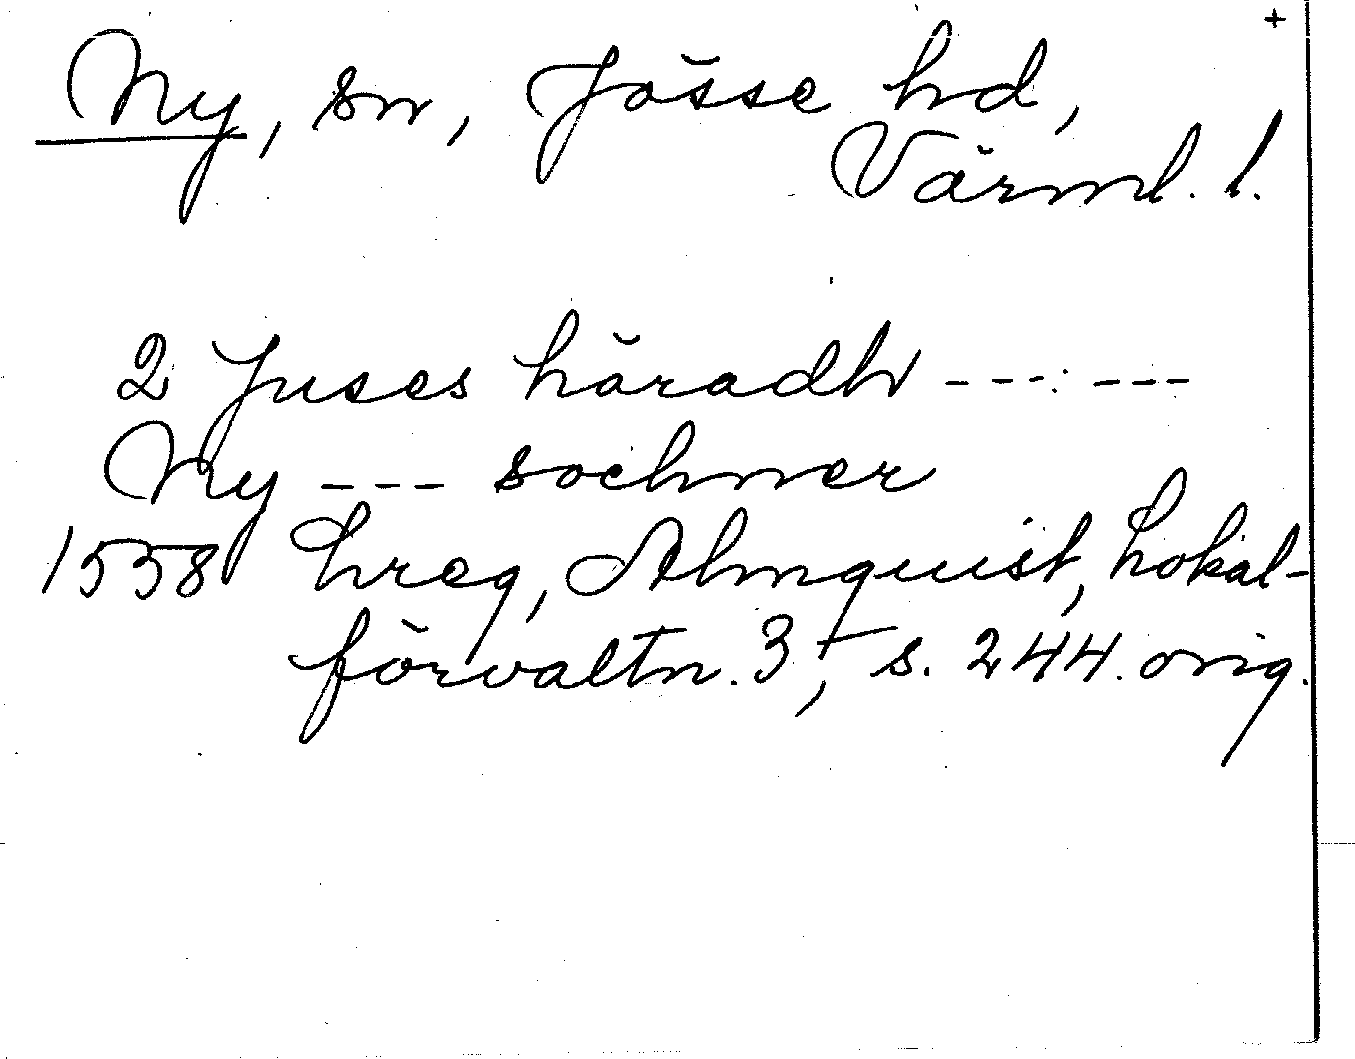 +
Ny, sn, Jösse hd,
Värml. l.
2 Juses häradh ---:---
Ny --- sochner
1558 Lreg, Almquist, Lokal-
förvaltn. 3, s. 244. orig.